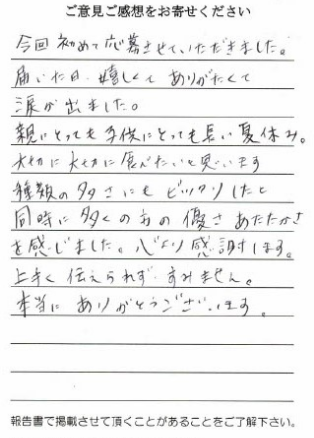 ご意見ご感想をお寄せください
今回初めて応募させていただきました。
届いた日、嬉しくて ありがたくて
涙が出ました。
親にとっても子供にとっても長い夏休み。
大切に大切に食べたいと思います
種類の多さにも ビックリしたと
同時に多くの方の優さ あたたかさ
を感じました。心より感謝します。
上手く伝えられず すみません。
本当に ありがとうございます。
報告書で掲載させて頂くことがあることをご了解下さい。